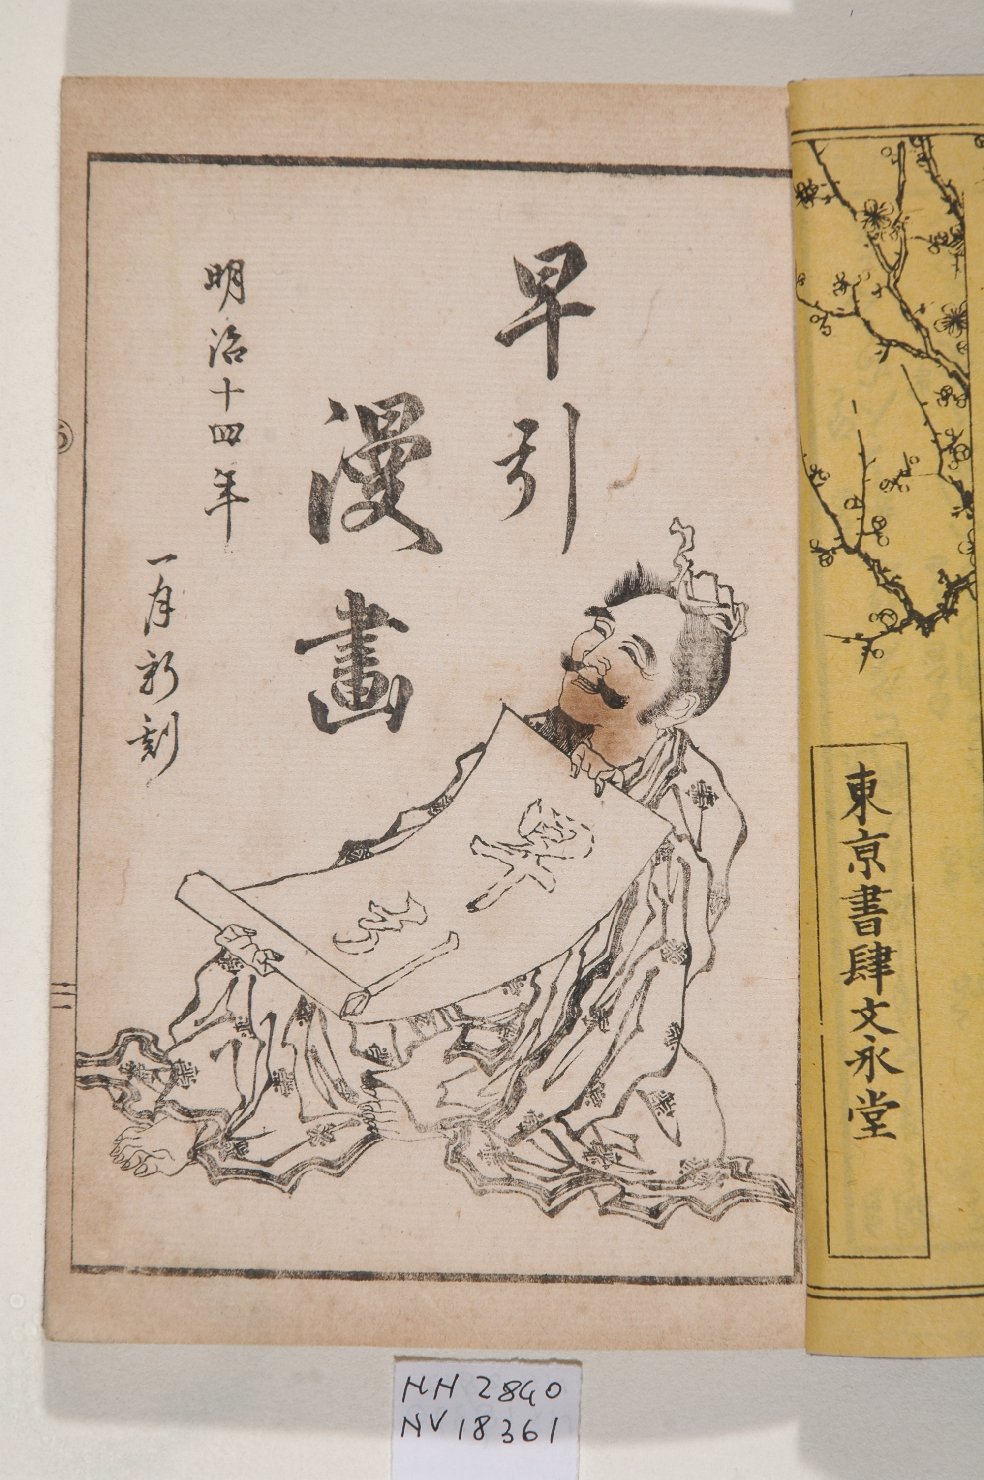 東京書肆文永堂
早引
漫畫
明治十四年
一月新刻
早引
NH 2840
NV 18361